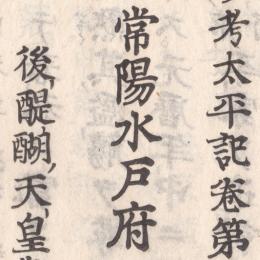 考太平記卷第
常陽水戸府
後醍醐天皇